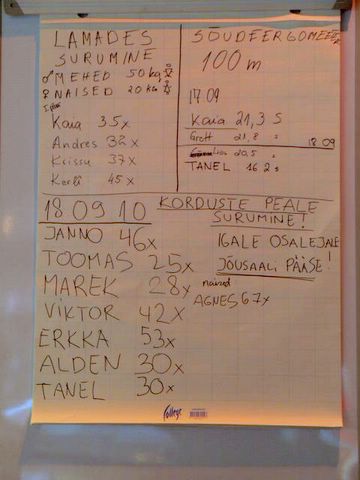 LAMADES
SURUMINE
♂ MEHED 50 kg
♀ NAISED 20 kg
Kaia 35x
Andres 32x
Krissu 37x
Kerli 45x
SÕUDEERGOMEETER
100 m
17.09
Kaia 21,3 S
Grott 21,8 "
18 09
20,5 "
TANEL 16 2 s
18 09 10
KORDUSTE PEALE
SURUMINE!
IGALE OSALEJALE
JÕUSAALI PÄÄSE!
JANNO 46x
TOOMAS 25x
MAREK 28x
VIKTOR 42x
ERKKA 53x
ALDEN 30x
TANEL 30x
naised
AGNES 67x
College